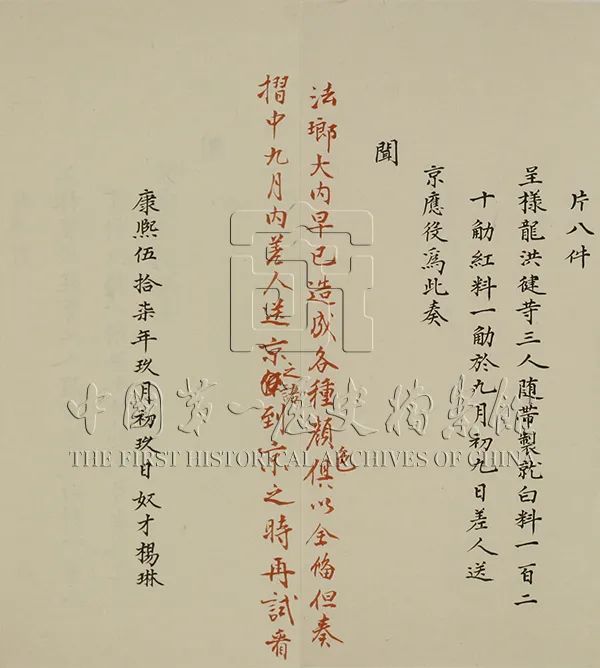 片八件
呈樣龍洪健等三人随帶製就白料一百二
十觔紅料一觔於九月初九日差人送
京應役爲此奏
聞
法瑯大内早已造成各種顔色俱以全俻但奏
摺中九月内差人送京之語到京之時再試看
康熙伍拾柒年玖月初玖日奴才楊琳
中國第一歷史檔案館
THE FIRST HISTORICAL ARCHIVES OF CHINA